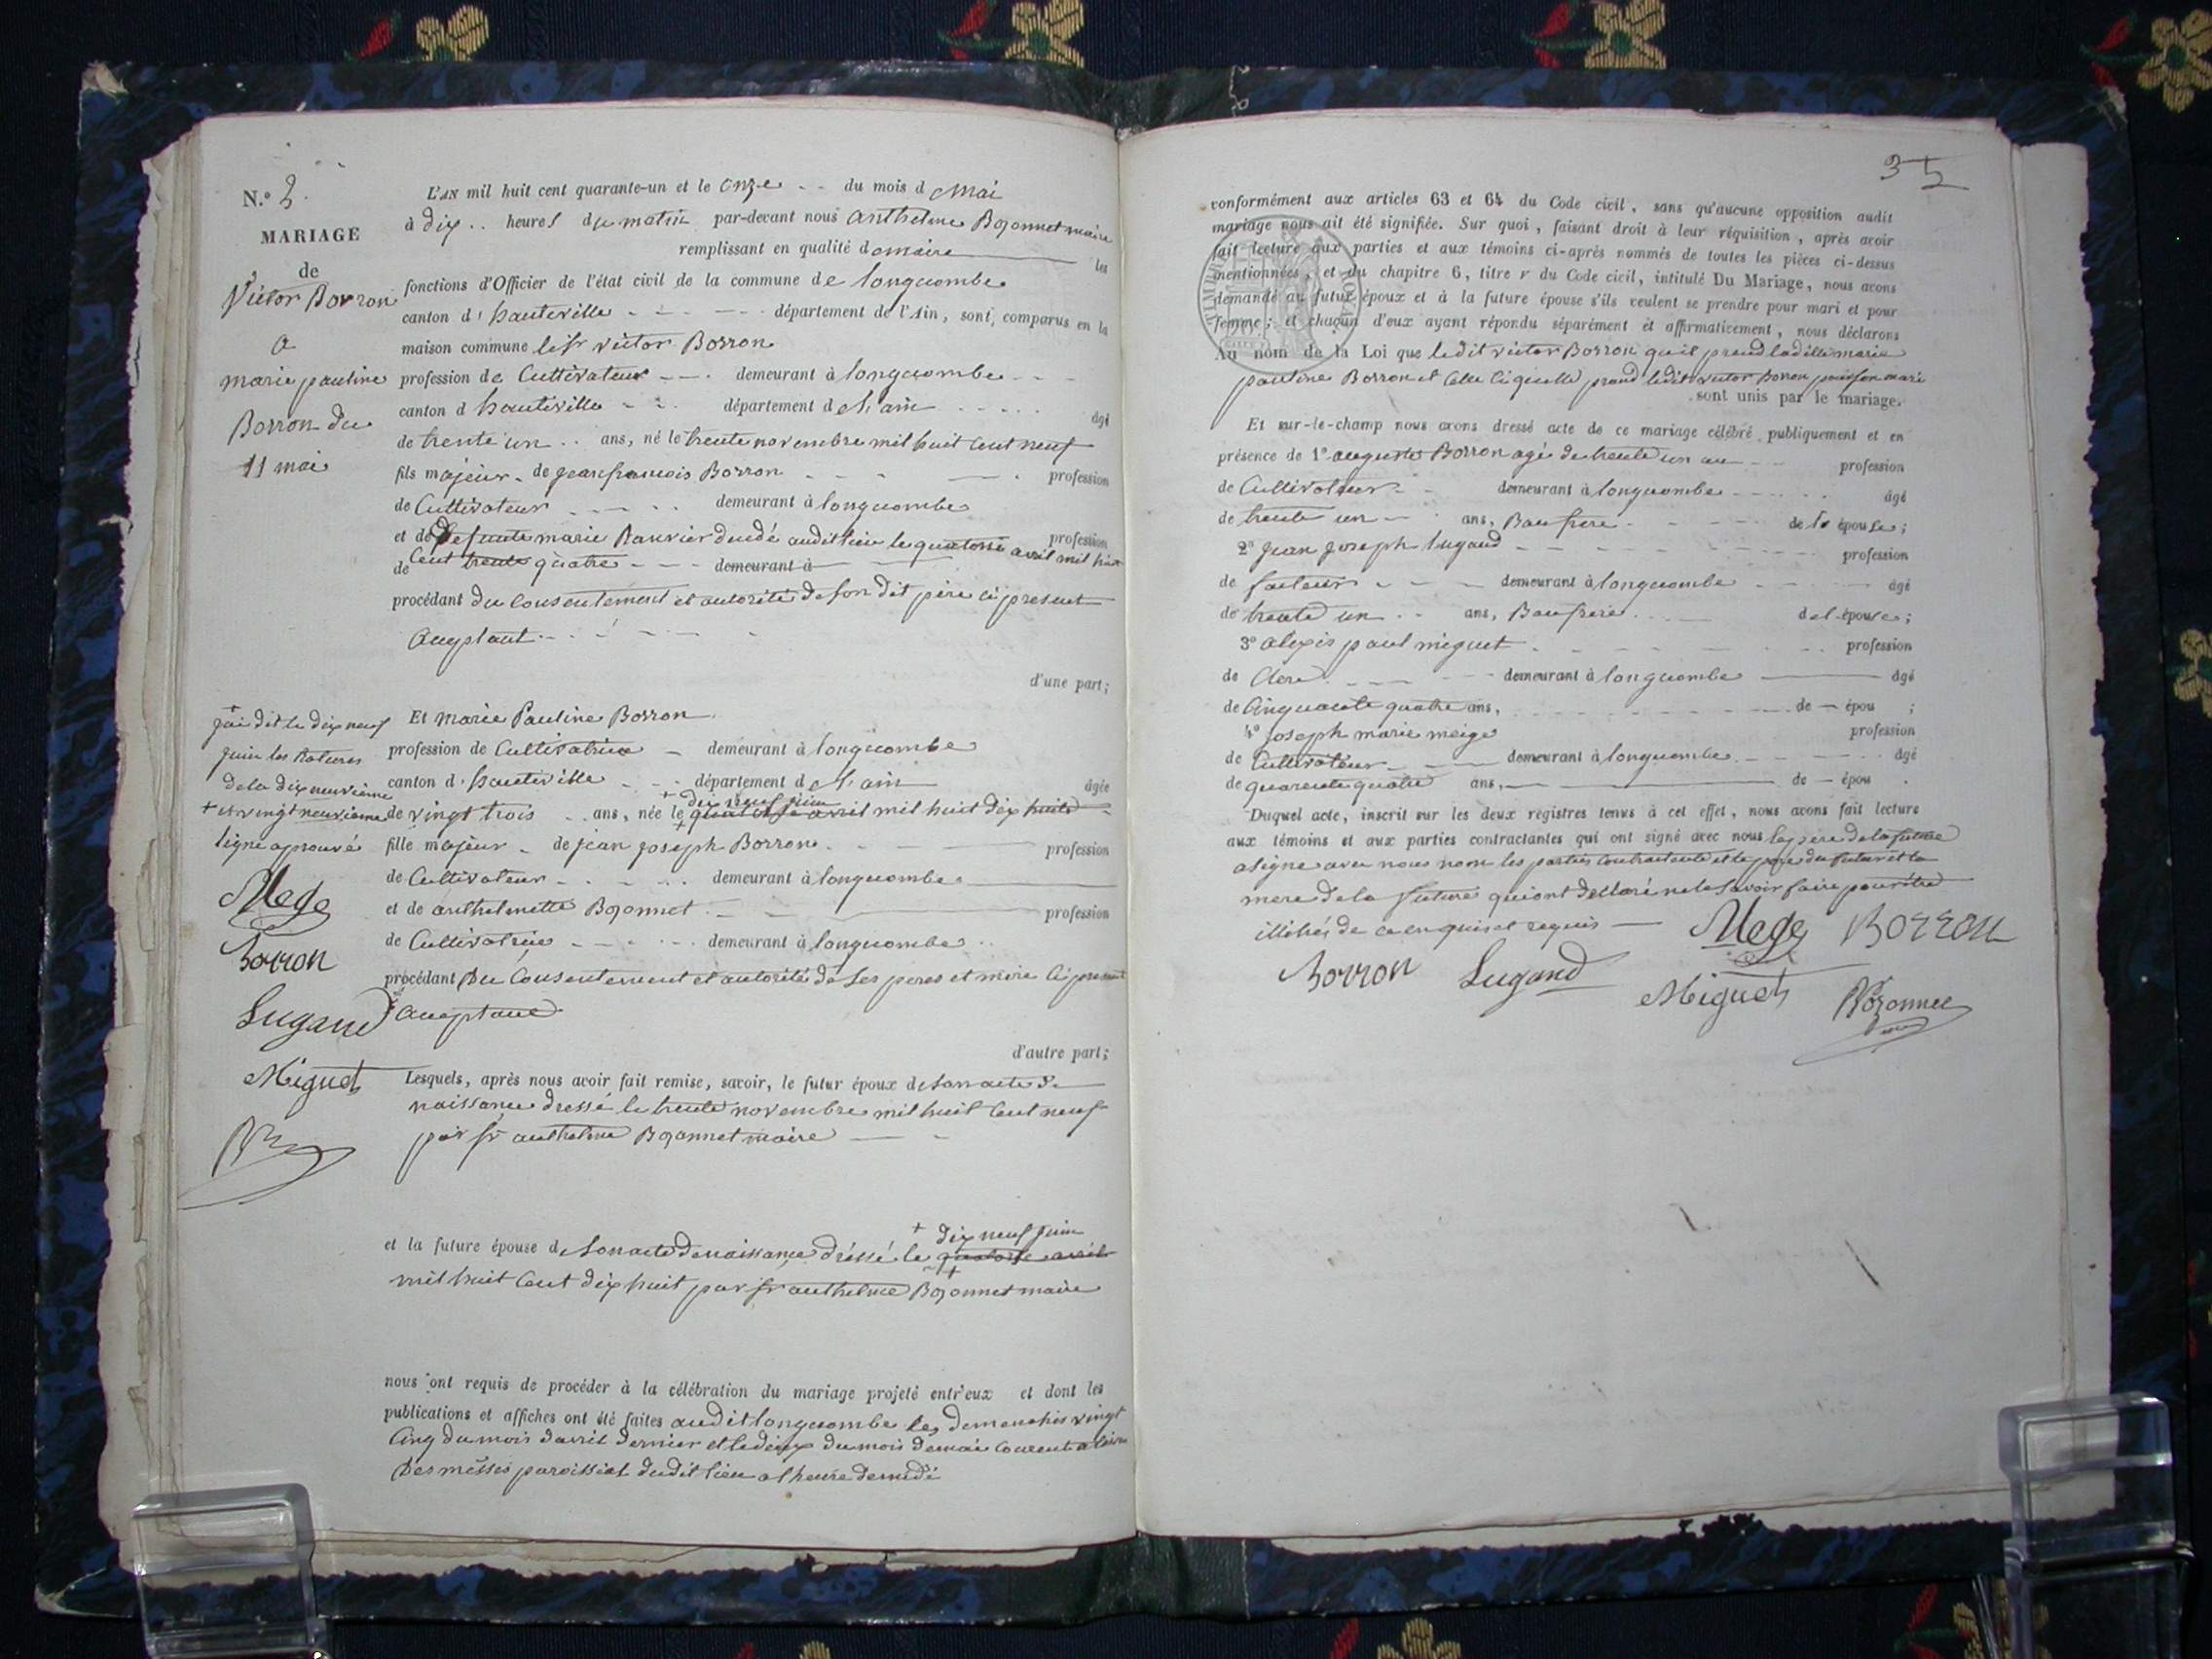 N.º 3.
MARIAGE
de
Victor Borron
a
marie pauline
Borron du
11 mai
L'AN mil huit cent quarante-un et le onze du mois d mai
à dix heures du matin par-devant nous anthelme Bozonnet maire
remplissant en qualité de maire les
fonctions d'Officier de l'état civil de la commune de longecombe
canton d'hauteville département de l'Ain, sont comparus en la
maison commune le sr victor Borron
profession de Cultivateur demeurant à longecombe
canton d hauteville département de l'ain âgé
de trente un ans, né le trente novembre mil huit cent neuf
fils majeur de jean francois Borron profession
de Cultivateur demeurant à longecombe
et de Defunte marie décédé audit lieu le quatorze avril mil huit profession
de Cent trente quatre demeurant à
procédant du consentement et autorité de son dit père ci présent
Aceptant
d'une part;
+ jai dit le dix neuf
juin les ratures
de la dix neuvieme
+ et vingt neuvieme
ligne aprouvé
Mege
Borron
Lugand
Miguet
Et marie Pauline Borron
profession de Cultivatrice demeurant à longecombe
canton d'hauteville département de l'ain âgée
+ dix neuf juin
de vingt trois ans, née le quatorse avril mil huit dix huite
fille majeur de jean joseph Borron profession
de Cultivateur demeurant à longecombe
et de anthelmette Bozonnet profession
de Cultivatrice demeurant à longecombe
procédant Du Consentement et autorité de Ses peres et mere ci present
aceptant
d'autre part;
Lesquels, après nous avoir fait remise, savoir, le futur époux de son acte de
naissance dressé le trente novembre mil huit Cent neuf
par sr anthelme Bozonnet maire
+ dix neuf juin
et la future épouse de son acte de naissance dréssé le quatorse avril
mil huit Cent dix huit par sr anthelme Bozonnet maire
nous ont requis de procéder à la célébration du mariage projeté entr'eux et dont les
publications et affiches ont été faites audit longecombe les demenches vingt
Cinq du mois davril dernier et le deux du mois de mai courent
Des messes paroissial dudit lieu a l heure de midi
35
conformément aux articles 63 et 64 du Code civil, sans qu'aucune opposition audit
mariage nous ait été signifiée. Sur quoi, faisant droit à leur réquisition, après avoir
fait lecture aux parties et aux témoins ci-après nommés de toutes les pièces ci-dessus
mentionnées, et du chapitre 6, titre v du Code civil, intitulé Du Mariage, nous avons
demandé au futur époux et à la future épouse s'ils veulent se prendre pour mari et pour
femme; et chacun d'eux ayant répondu séparément et affirmativement, nous déclarons
Au nom de la Loi que ledit victor Borron qu'il prend ladite marie
pauline Borron et Celle ci quelle prend ledit victor Borron pour son mari
sont unis par le mariage.
Et sur-le-champ nous avons dressé acte de ce mariage célébré publiquement et en
présence de 1º auguste Borron agé de trente un an profession
de Cultivateur demeurant à longecombe âgé
de trente un ans, Baufrere de l épouse;
2º jean joseph lugand profession
de facteur demeurant à longecombe âgé
de trente un ans, Baufrere de l épouse;
3º alexis paul miguet profession
de Clerc demeurant à longecombe âgé
de Cinquante quatre ans, de — épou ;
4º joseph marie meige profession
de Cultivateur demeurant à longecombe âgé
de quarente quatre ans, de — épou .
Duquel acte, inscrit sur les deux registres tenus à cet effet, nous avons fait lecture
aux témoins et aux parties contractantes qui ont signé avec nous le père de la future
a signe avec nous non les parties contractente et le pere du futur et la
mere de la future qui ont dellaré ne le savoir faire pour être
illitérés de ce enquis et requis
Mege Borron
Borron Lugand Miguet Bozonnet